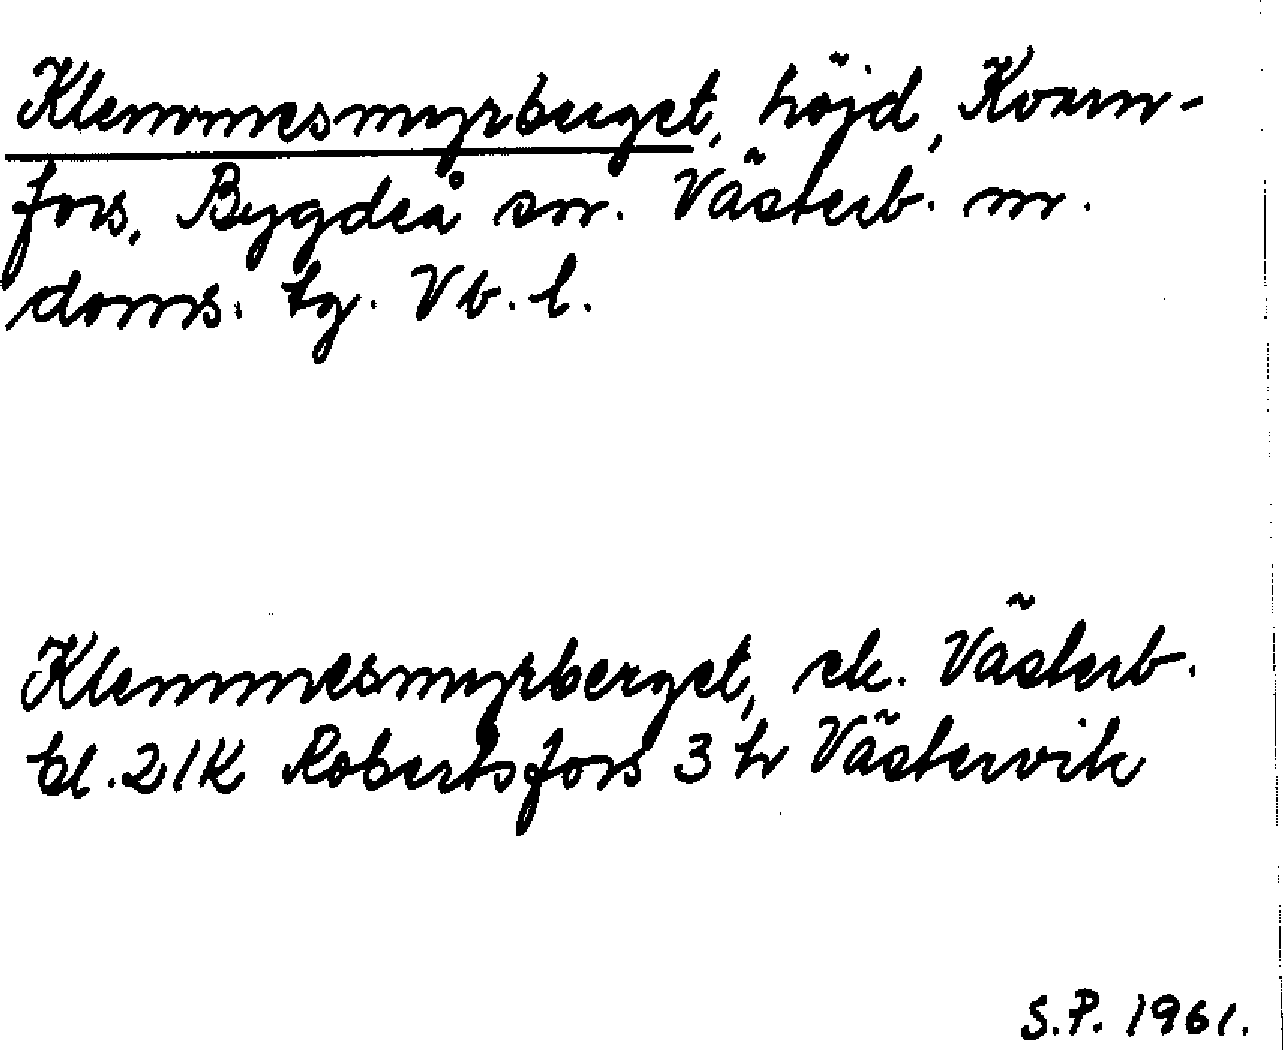 Klemmesmyrberget, höjd, Kvarn-
fors, Bygdeå sn. Västerb. n.
doms. tg. Vb. l.
Klemmesmyrberget, ek. Västerb.
bl. 21K Robertsfors 3 h Västervik
S.P. 1961.